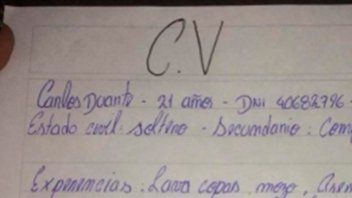 C.V
Carlos Duarte - 21 años - DNI 40682796
Estado civil: soltero - Secundario: Com
Experiencias: Lava copas, mozo,